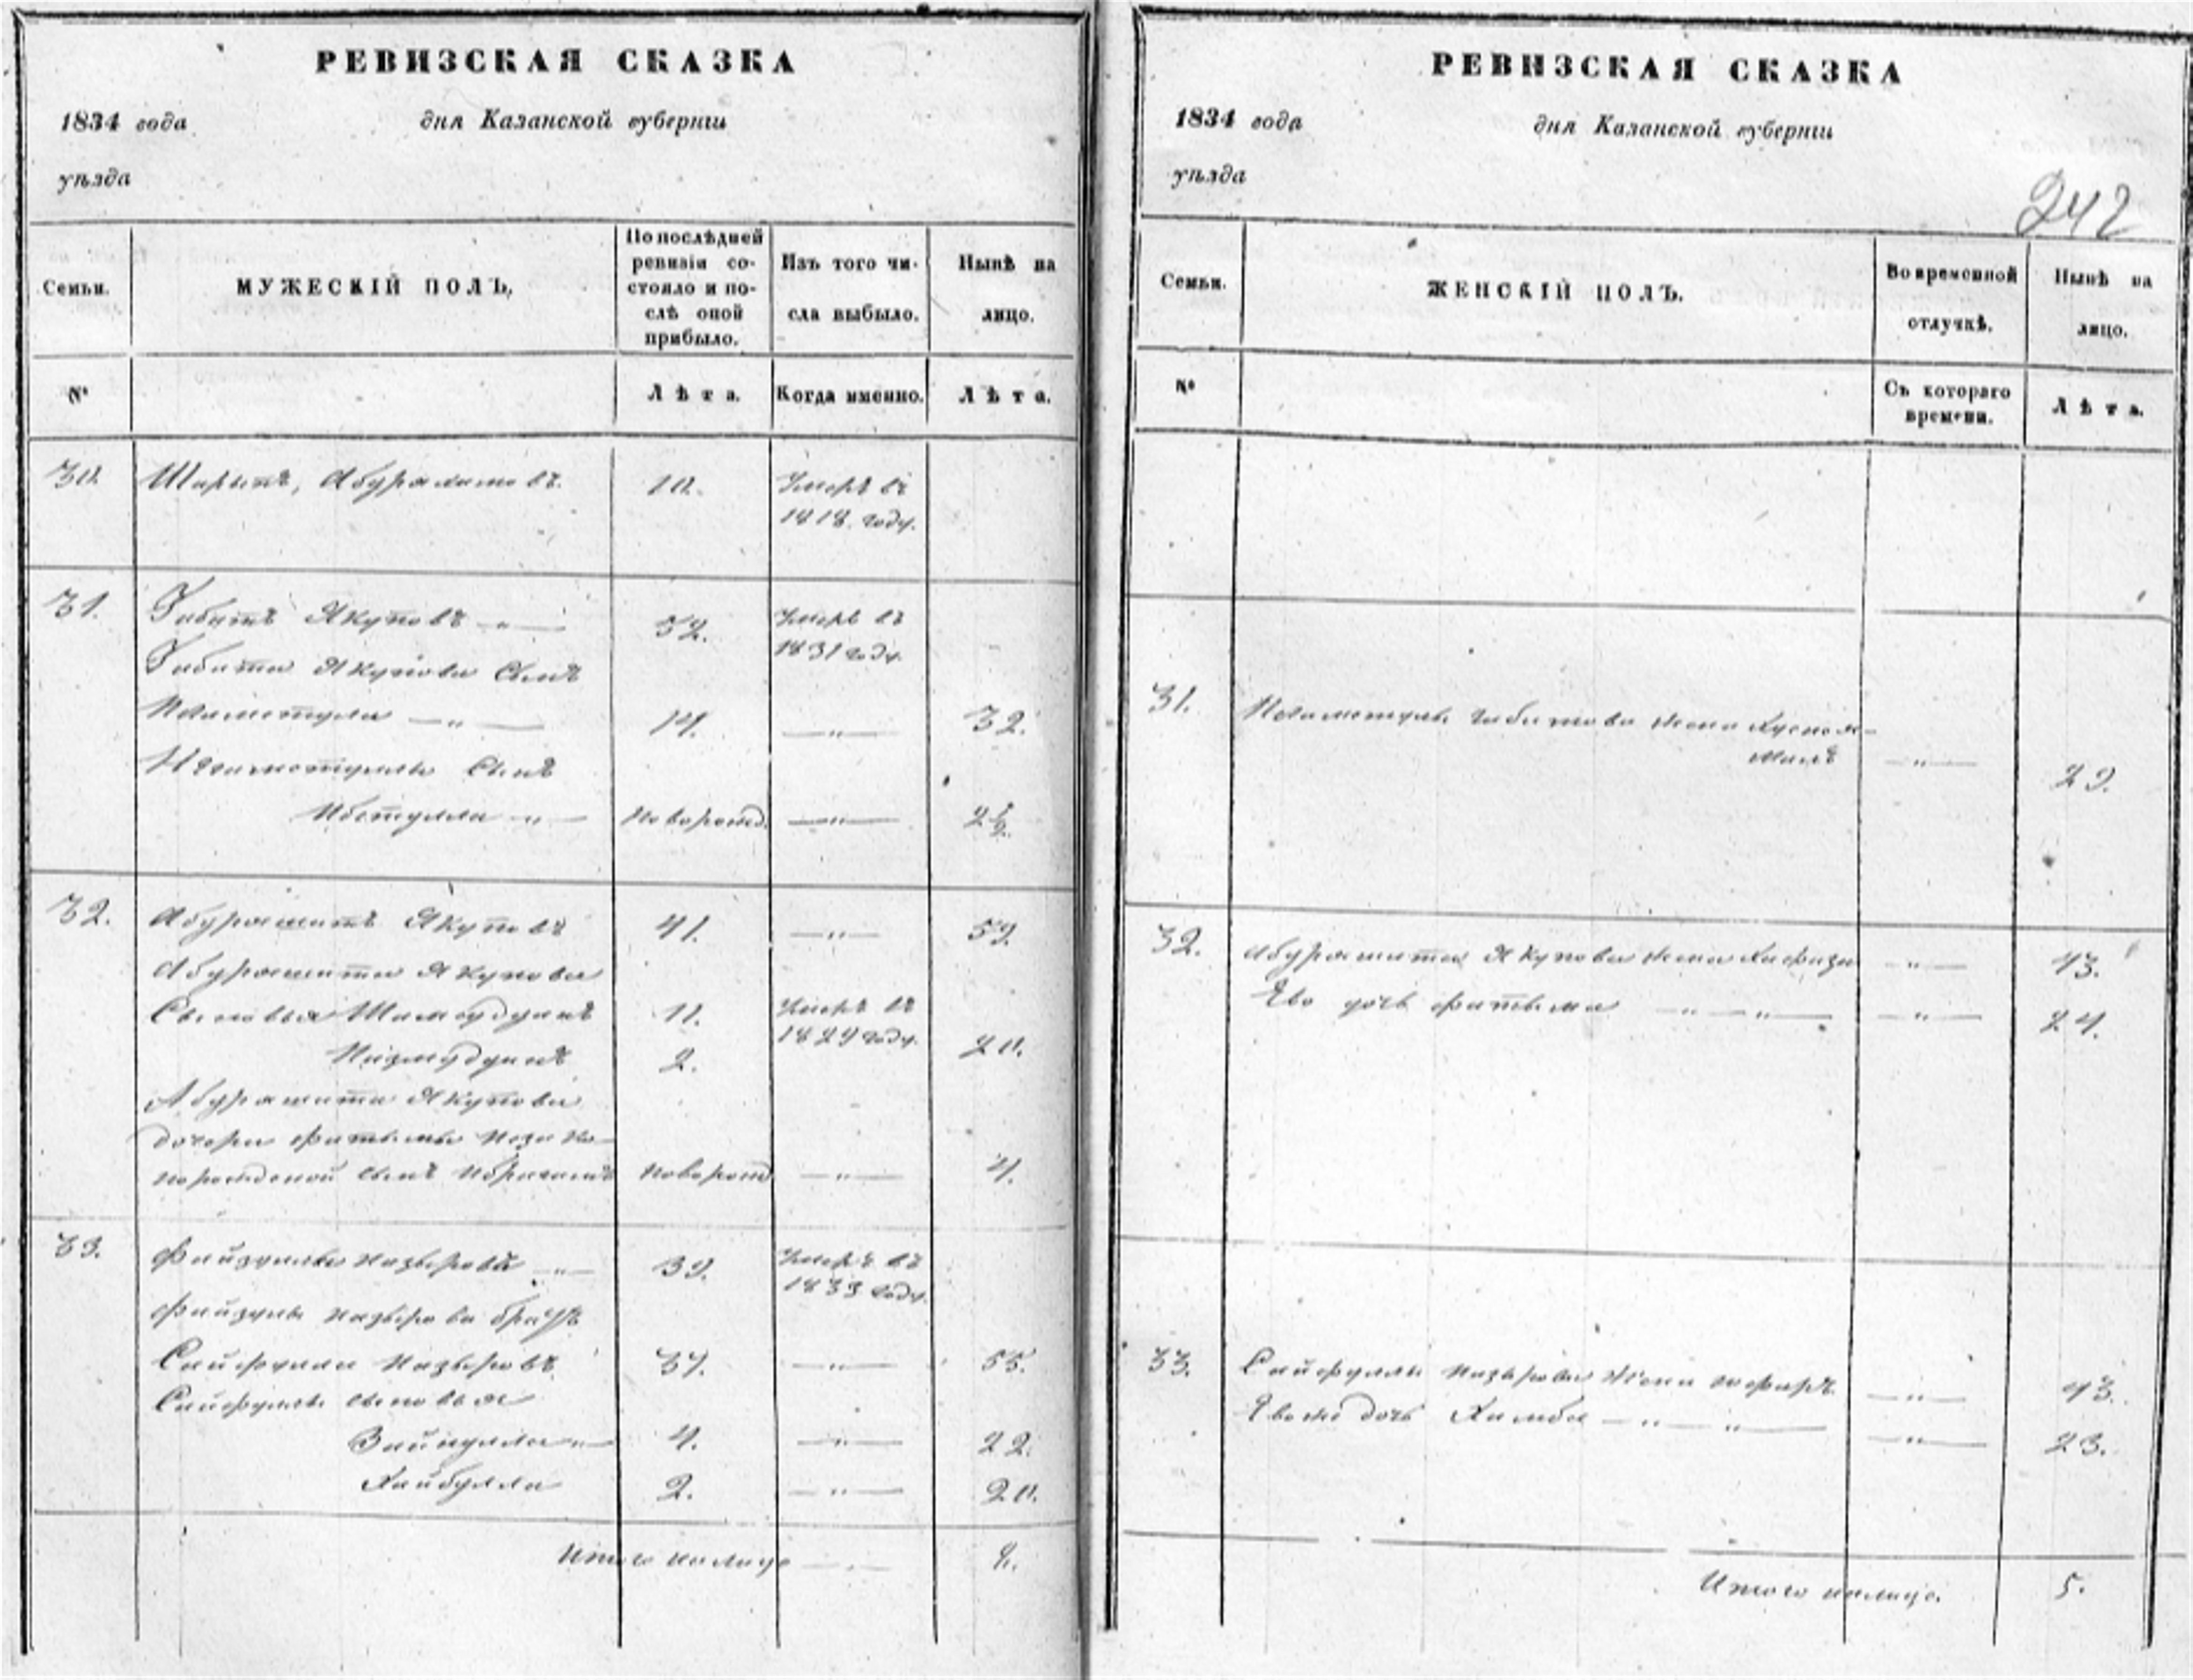 РЕВИЗСКАЯ СКАЗКА
1834 года дня Казанской губерніи
уѣзда
Семьи.
МУЖЕСКІЙ ПОЛЪ,
По послѣдней
ревизіи со-
стояло и по-
слѣ оной
прибыло.
Изъ того чи-
сла выбыло.
Нынѣ на
лицо.
№
Лѣта.
Когда именно.
Лѣта.
30. Абдряхимовъ 10. Умеръ въ
1818 году.
31. Габитъ Якуповъ — " — 52. Умеръ въ
1831 году.
Габита Якупова Сынъ
14. — " — 32.
Сынъ
Новорожд. — " — 2½.
32. Абдряшитъ Якуповъ 41. — " — 59.
Абдряшита Якупова
Сыновья 11. Умеръ въ
1829 году.
2. 20.
Абдряшита Якупова
дочери Фатымы неза ко-
норожденой сынъ Ибрагимъ Новорожд — " — 4.
33. Файзулла Назыровъ — " — 39. Умеръ въ
1833 году.
Файзулы Назырова братъ
Сайфулла Назыровъ 37. — " — 55.
Сайфуллы сыновья
Зайнулла " — 4. — " — 22.
Хайбулла 2. — " — 20.
Итого налицо — 8.
РЕВИЗСКАЯ СКАЗКА
1834 года дня Казанской губерніи
уѣзда
242
Семьи.
ЖЕНСКІЙ ПОЛЪ.
Во временной
отлучкѣ.
Нынѣ на
лицо.
№
Съ котораго
времени.
Лѣта.
31. Габитова жена
— " — 29.
32. Абдряшита Якупова жена Хафиза — " — 43.
Его дочь Фатыма — " — " — — " — 24.
33. Сайфуллы Назырова жена — " — 43.
Его же дочь — " — " — — " — 23.
Итого налицо. 5.